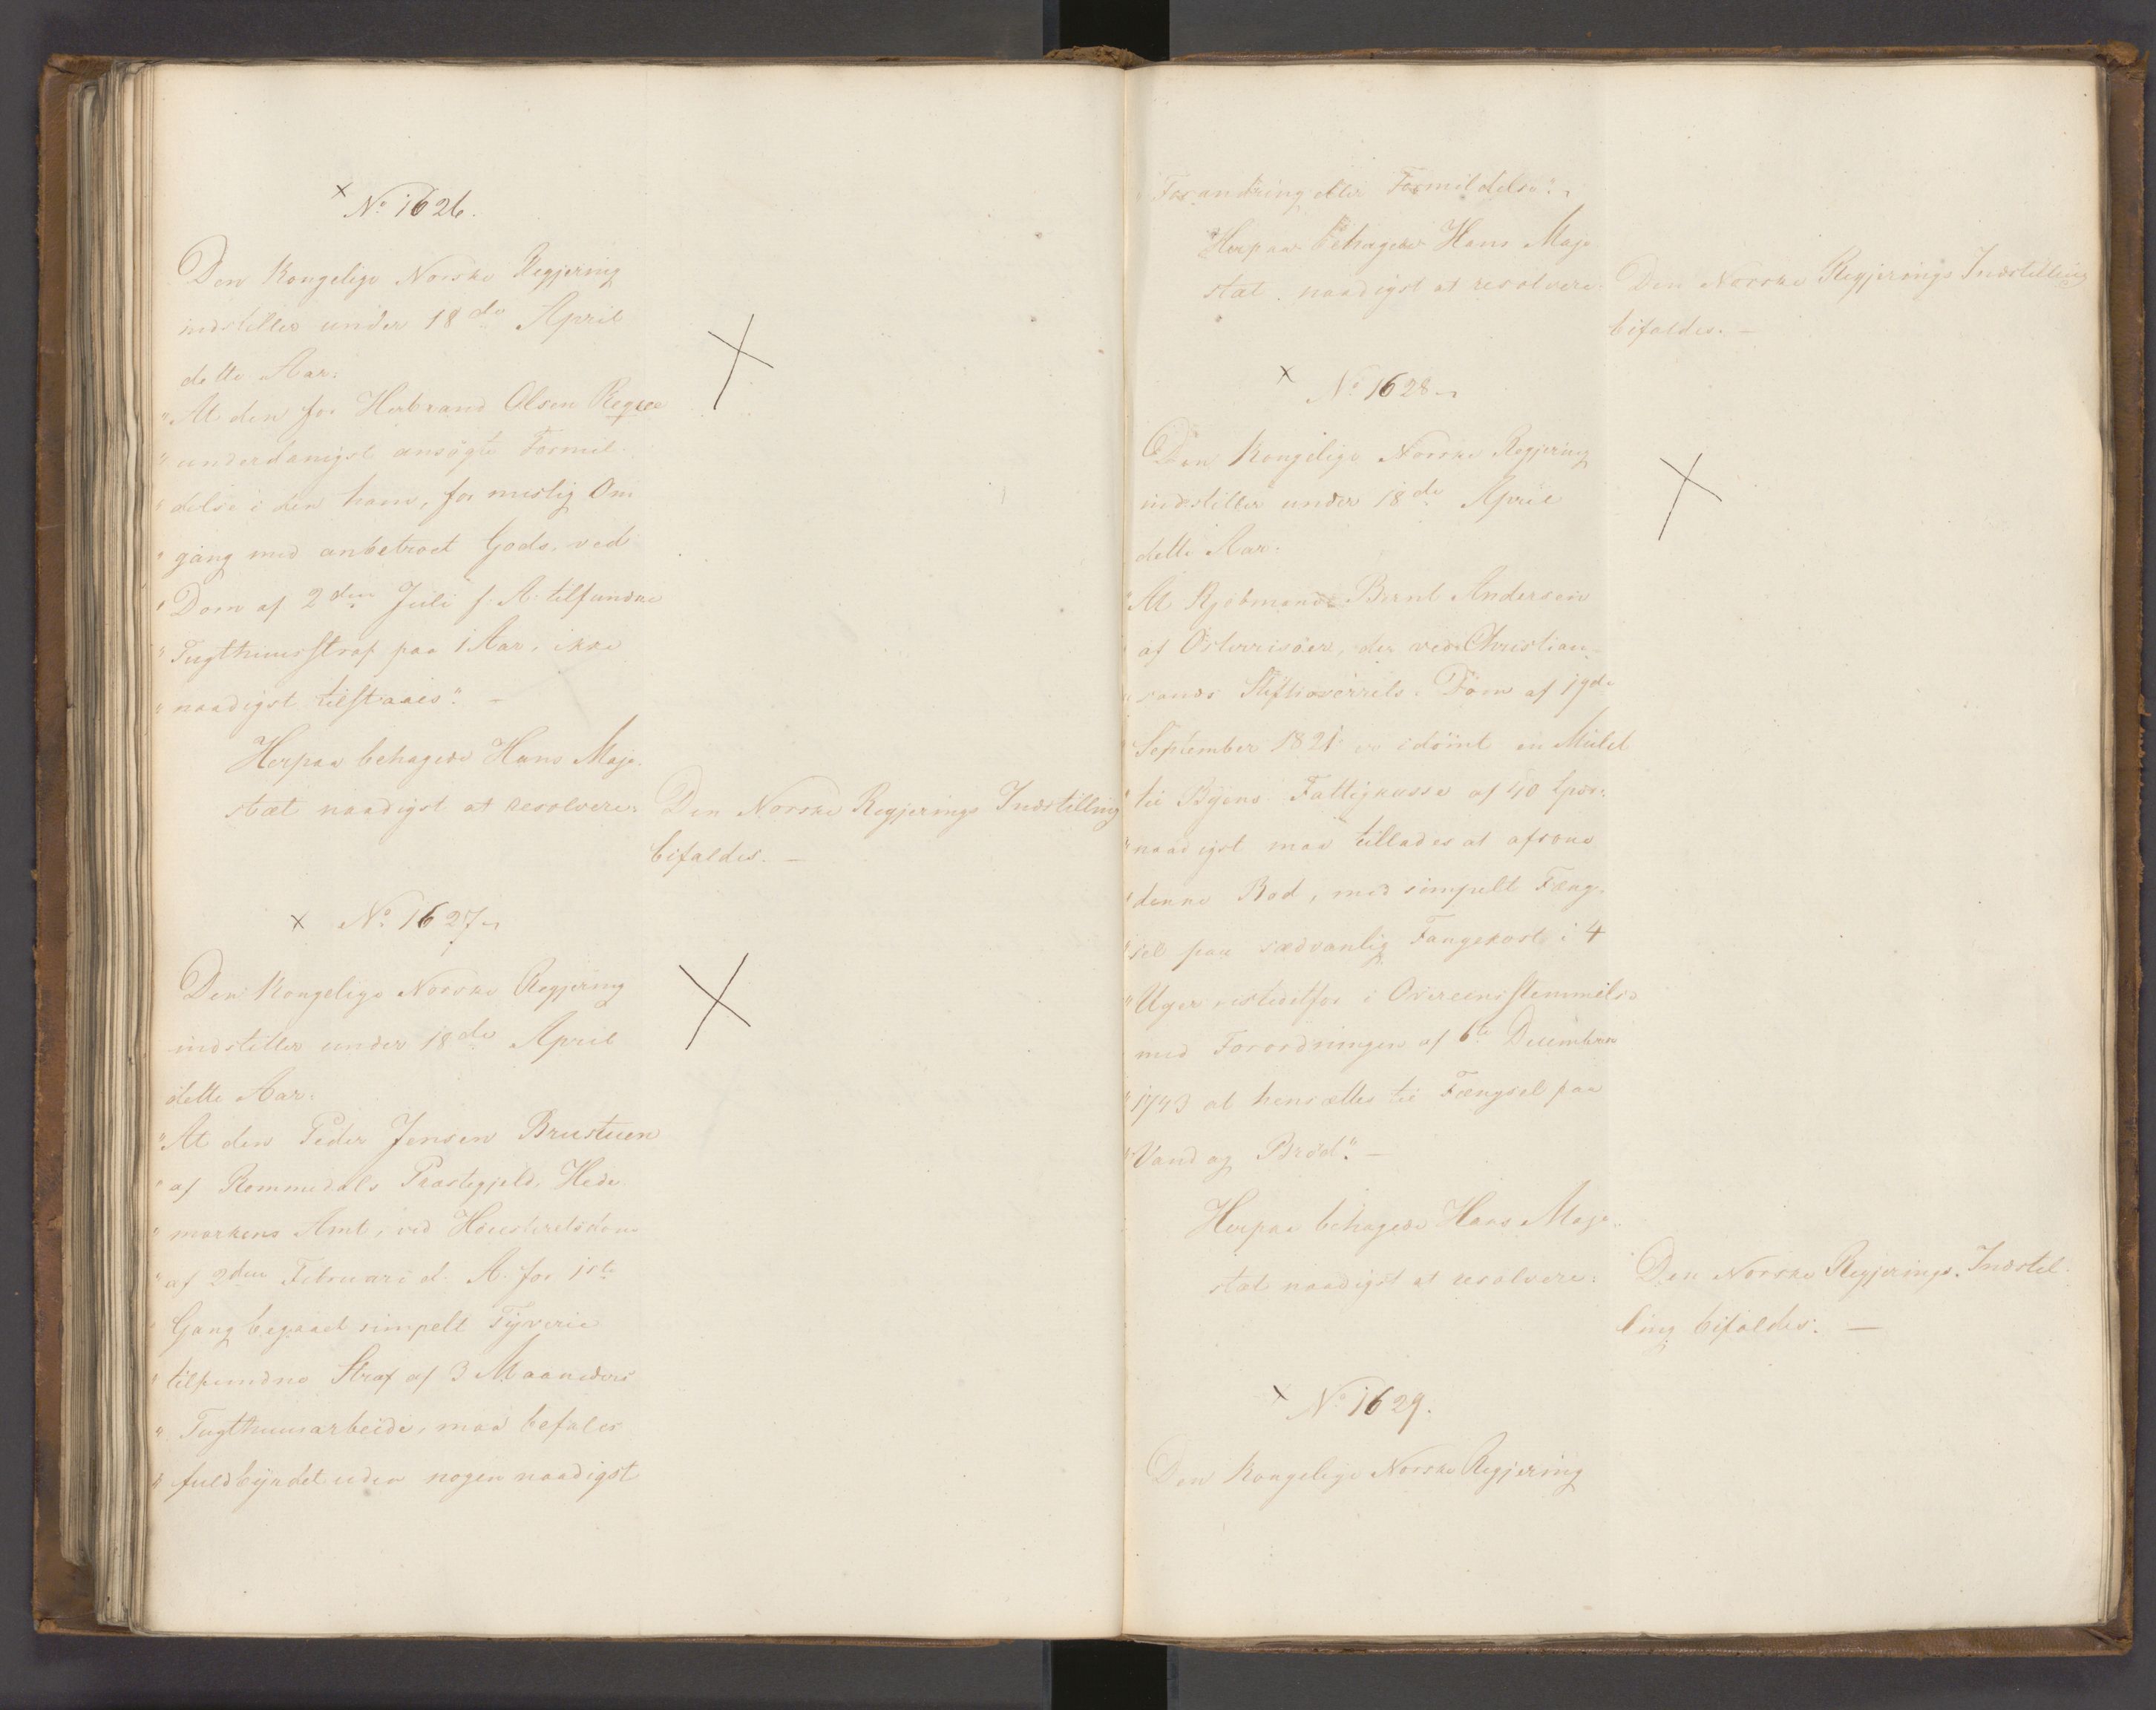 × No 1626.
Den Kongelige Norske Regjering
indstiller under 18de April
dette Aar:
"At den for Herbrand Olsen
"underdanigst ansøgte Formil-
"delse i den ham, for mislig Om
"gang med anbetroet Gods, ved
"Dom af 2den Juli f: A: tilfundne
"Tugthuusstraf paa 1 Aar, ikke
"naadigst tilstaaes". –
Herpaa behagede Hans Maje-
stæt naadigst at resolvere:
Den Norske Regjerings Indstilling
bifaldes. –
× No 1627
Den Kongelige Norske Regjering
indstiller under 18de April
dette Aar:
"At den Peder Jensen Brustuen
"af Rommedals Præstegjeld, Hede
"markens Amt, ved Høiesteretsdom
"af 2den Februari d. A. for 1ste
"Gang begaaet simpelt Tyverie
"tilfundne Straf af 3 Maaneders
"Tugthuusarbeide, maa befales
"fuldbyrdet uden nogen naadigst
"Forandring eller Formildelse".
Herpaa behagede Hans Maje
stæt naadigst at resolvere:
Den Norske Regjerings Indstilling
bifaldes. –
× No 1628
Den Kongelige Norske Regjering
indstiller under 18de April
dette Aar:
"At Kjøbmand Bernt Andersen
"af Østerrisøer, der ved Christian-
"sands Stiftsoverrets Dom af 19de
"September 1821 er idømt en Mulct
"til Byens Fattigkasse af 40 Spd:
"naadigst maa tillades at afsone
"denne Bod, med simpelt Fæng-
"sel paa sædvanlig Fangekost i 4
"Uger istedetfor i Overeensstemmelse
"med Forordningen af 6te December
"1743 at hensættes til Fængsel paa
"Vand og Brød". –
Herpaa behagede Hans Maje-
stæt naadigst at resolvere:
Den Norske Regjerings Indstil-
ling bifaldes. –
× No 1629.
Den Kongelige Norske Regjering